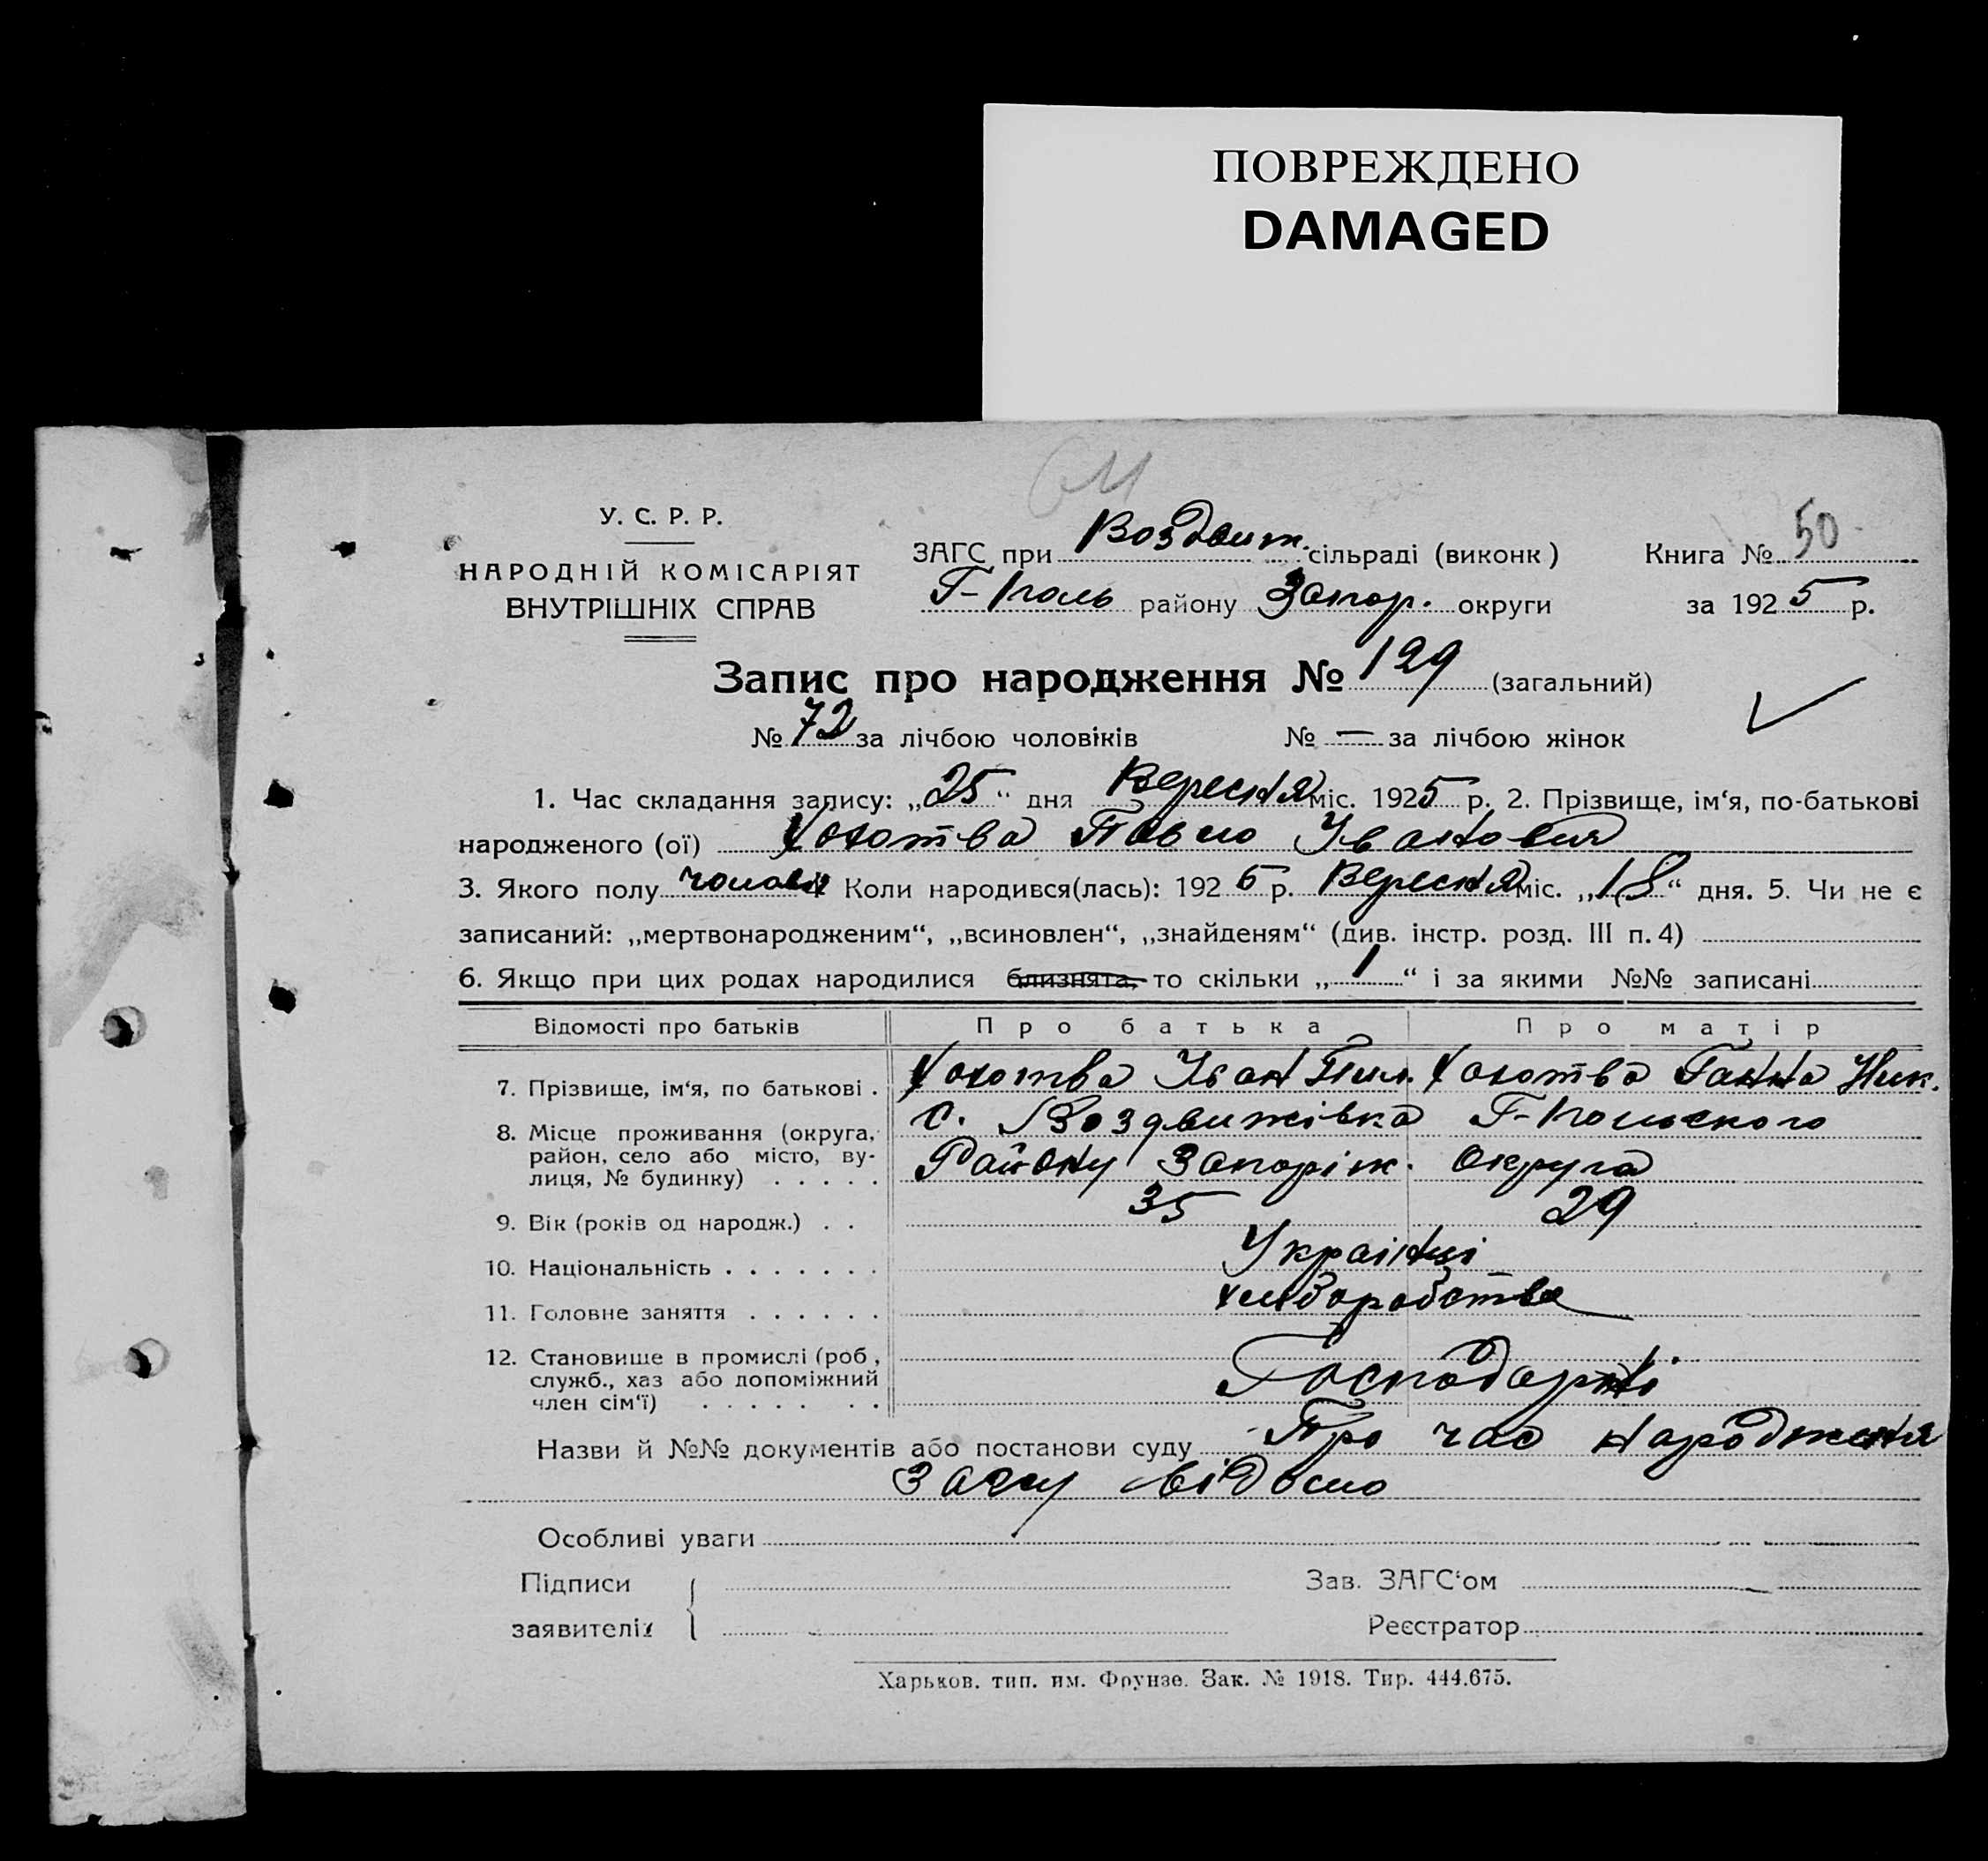 ПОВРЕЖДЕНО
DAMAGED
У. С. Р. Р.
НАРОДНІЙ КОМІСАРІЯТ
ВНУТРІШНІХ СПРАВ
ЗАГС при Воздвиж. сільраді (виконк)
Г-Поль району Запор. округи
Книга № 50
за 1925 р.
Запис про народження № 129 (загальний)
№ 72 за лічбою чоловіків № — за лічбою жінок
1. Час складання запису: „25“ дня Вересня міс. 1925 р. 2. Прізвище, ім‘я, по-батькові
народженого (ої) Хохотва Павло Іванович
3. Якого полу чолов 4 Коли народився(лась): 1925 р. Вересня міс. „18“ дня. 5. Чи не є
записаний: „мертвонародженим“, „всиновлен“, „знайденям“ (див. інстр. розд. III п. 4)
6. Якщо при цих родах народилися близнята, то скільки „1“ і за якими №№ записані
Відомості про батьків Про батька Про матір
7. Прізвище, ім‘я, по батькові . Хохотва Іван Пил. Хохотва Ганна Ник.
8. Місце проживання (округа, район, село або місто, ву-лиця, № будинку) . . . . .
с. Воздвижівка Г-Польского
Району Запоріж. округа
9. Вік (років од народж.) . . 35 29
10. Національність . . . . . . . Українці
11. Головне заняття . . . . . . хліборобства
12. Становище в промислі (роб, служб., хаз або допоміжний член сім‘ї) . . . . . . .
Господарні
Назви й №№ документів або постанови суду Про час народження
загсу відомо
Особливі уваги
Підписи
заявителів
Зав. ЗАГС‘ом
Реєстратор
Харьков. тип. им. Фрунзе. Зак. № 1918. Тир. 444.675.